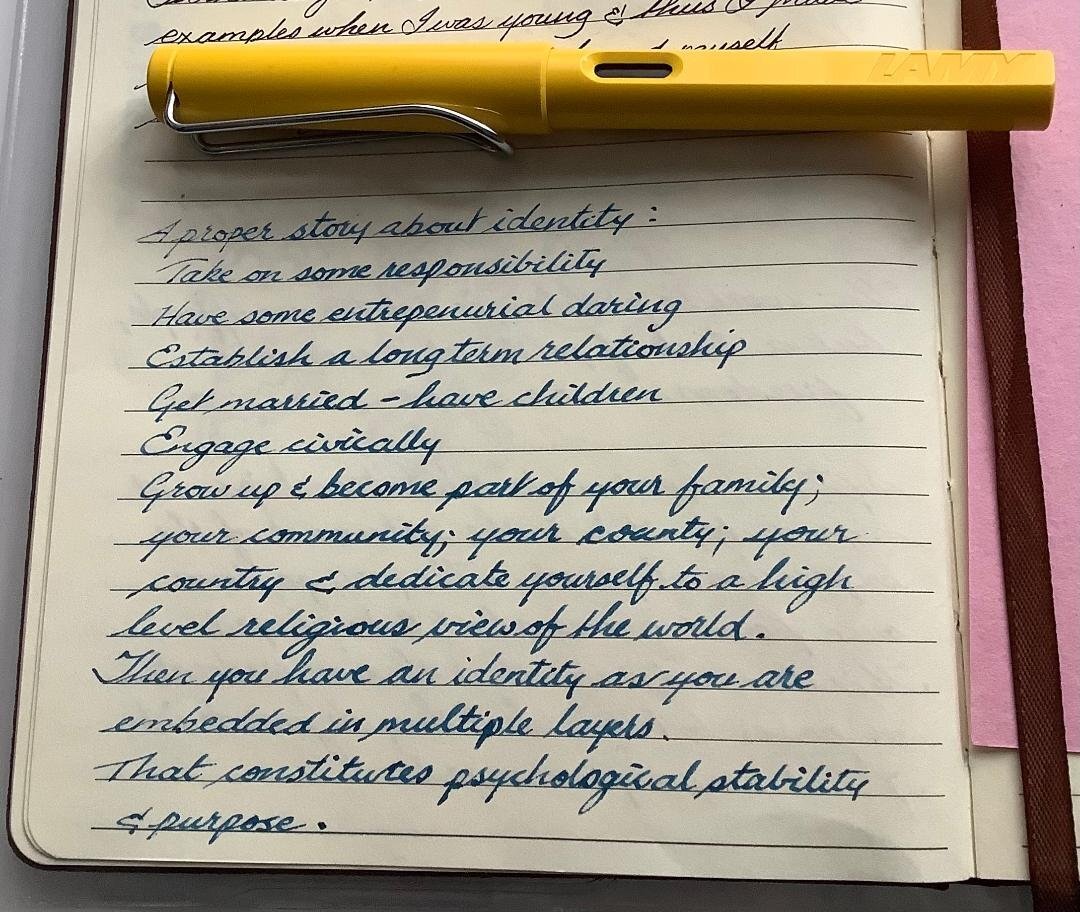 examples when I was young & thus I
myself
LAMY
A proper story about identity:
Take on some responsibility
Have some entrepenurial daring
Establish a long term relationship
Get married - have children
Engage civically
Grow up & become part of your family;
your community; your county; your
country & dedicate yourself to a high
level religious view of the world.
Then you have an identity as you are
embedded in multiple layers.
That constitutes psychological stability
& purpose.